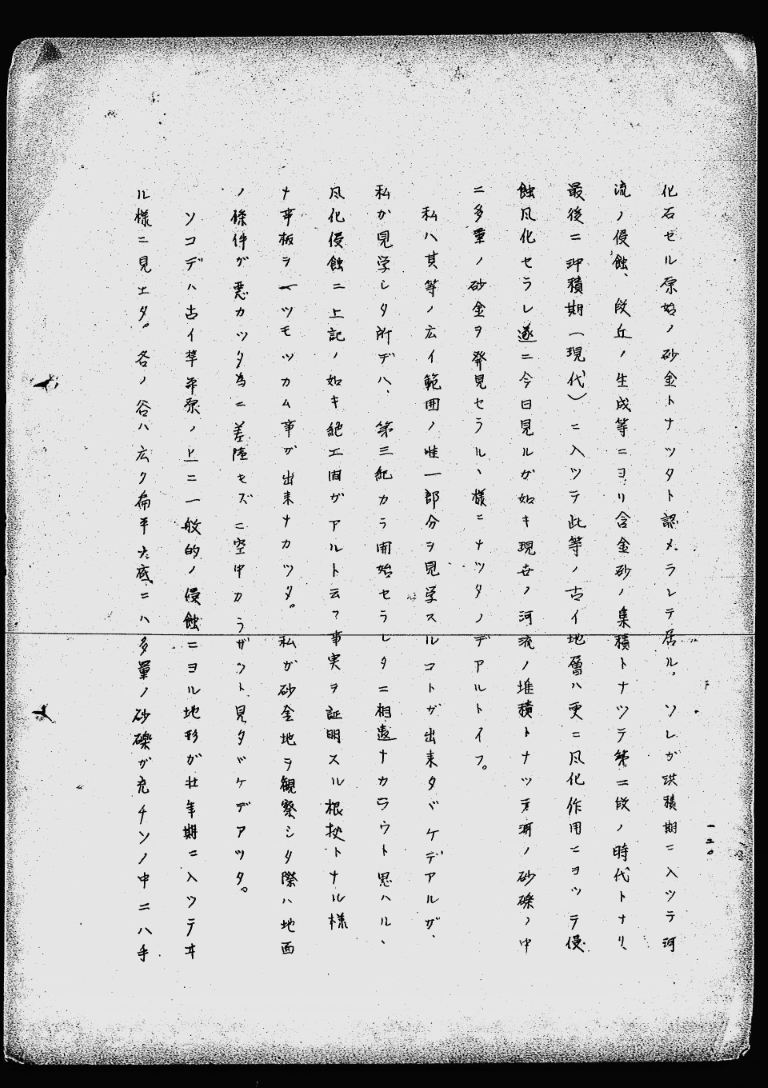 一二〇
化石セル原始ノ砂金トナツタト認メラレテ居ル。ソレガ洪積期ニ入ツテ河
流ノ侵蝕、段丘ノ生成等ニヨリ含金砂ノ集積トナツテ第二段ノ時代トナリ、
最後ニ沖積期(現代)ニ入ツテ此等ノ古イ地層ハ更ニ風化作用ニヨツテ侵
蝕風化セラレ遂ニ今日見ルガ如キ現世ノ河流ノ堆積トナツテ河ノ砂礫ノ中
ニ多量ノ砂金ヲ発見セラルヽ様ニナツタノデアルトイフ。
私ハ其等ノ広イ範囲ノ唯一部分ヲ見学スルコトガ出来タバケデアルガ、
私ガ見学シタ所デハ、第三紀カラ開始セラレタニ相違ナカラウト思ハルヽ
風化侵蝕ニ上記ノ如キ絶エ間ガアルト云フ事実ヲ証明スル根拠トナル様
ナ事板ヲ一ツモツカム事ガ出来ナカツタ。私ガ砂金地ヲ観察シタ際ハ地面
ノ條件ガ悪カツタ為ニ差陸セズニ空中カラザツト見タバケデアツタ。
ソコデハ古イ準平原ノ上ニ一般的ノ侵蝕ニヨル地形ガ壮年期ニ入ツテヰ
ル様ニ見エタ。各ノ谷ハ広ク扁平大底ニハ多量ノ砂礫ガ充チソノ中ニハ手